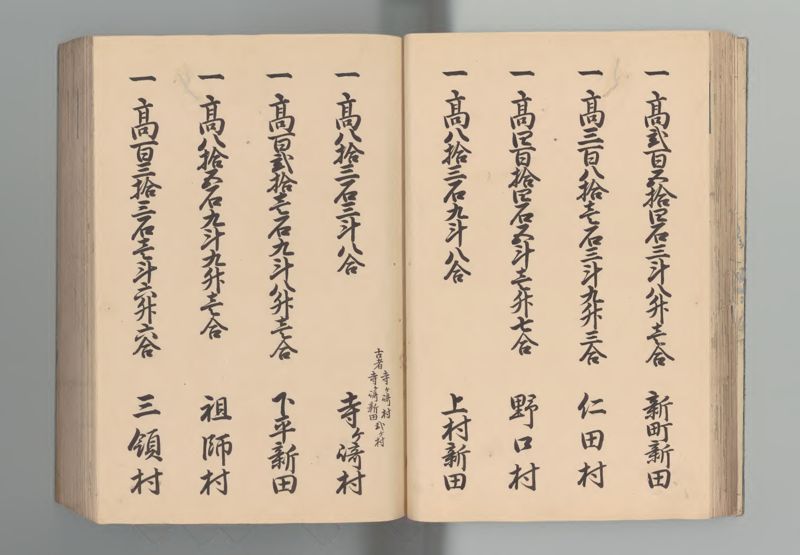 一 高弐百五拾四石三斗八升壱合 新町新田
一 高三百八拾壱石三斗九升三合 仁田村
一 高四百拾四石五斗壱升七合 野口村
一 高八拾三石九斗八合 上村新田
古者 寺ヶ崎村
寺ヶ崎新田 弐ヶ村
一 高八拾三石三斗八合 寺ヶ崎村
一 高百弐拾壱石九斗八升壱合 下平新田
一 高八拾五石九斗九升壱合 祖師村
一 高百三拾三石壱斗六升六合 三領村